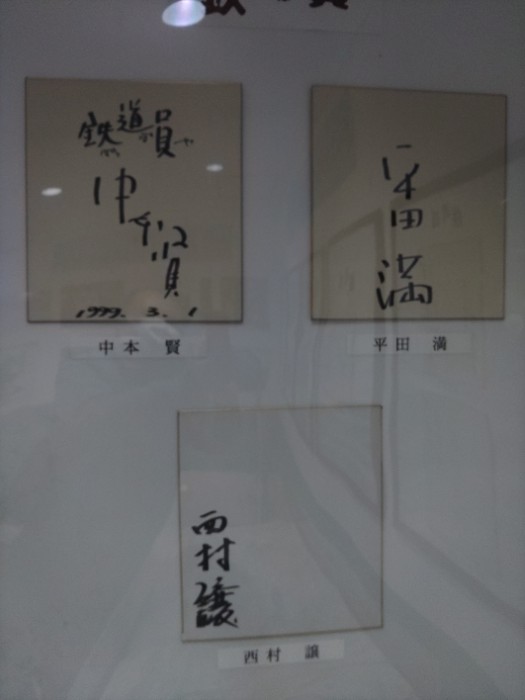 鉄道員
中本賢
1999. 3. 1
中本 賢
平田
満
平田 満
西村
譲
西村 譲